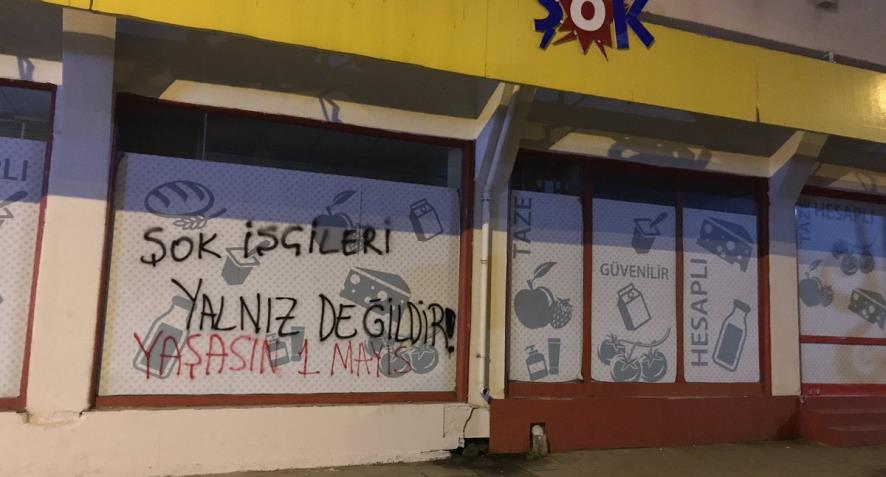 ŞOK
PLI
ŞOK İŞGİLERİ
YALNIZ DEĞİLDİR!
YAŞASIN 1 MAYIS
TAZE
GÜVENİLİR
HESAPLI
TAZE
HESAPLI